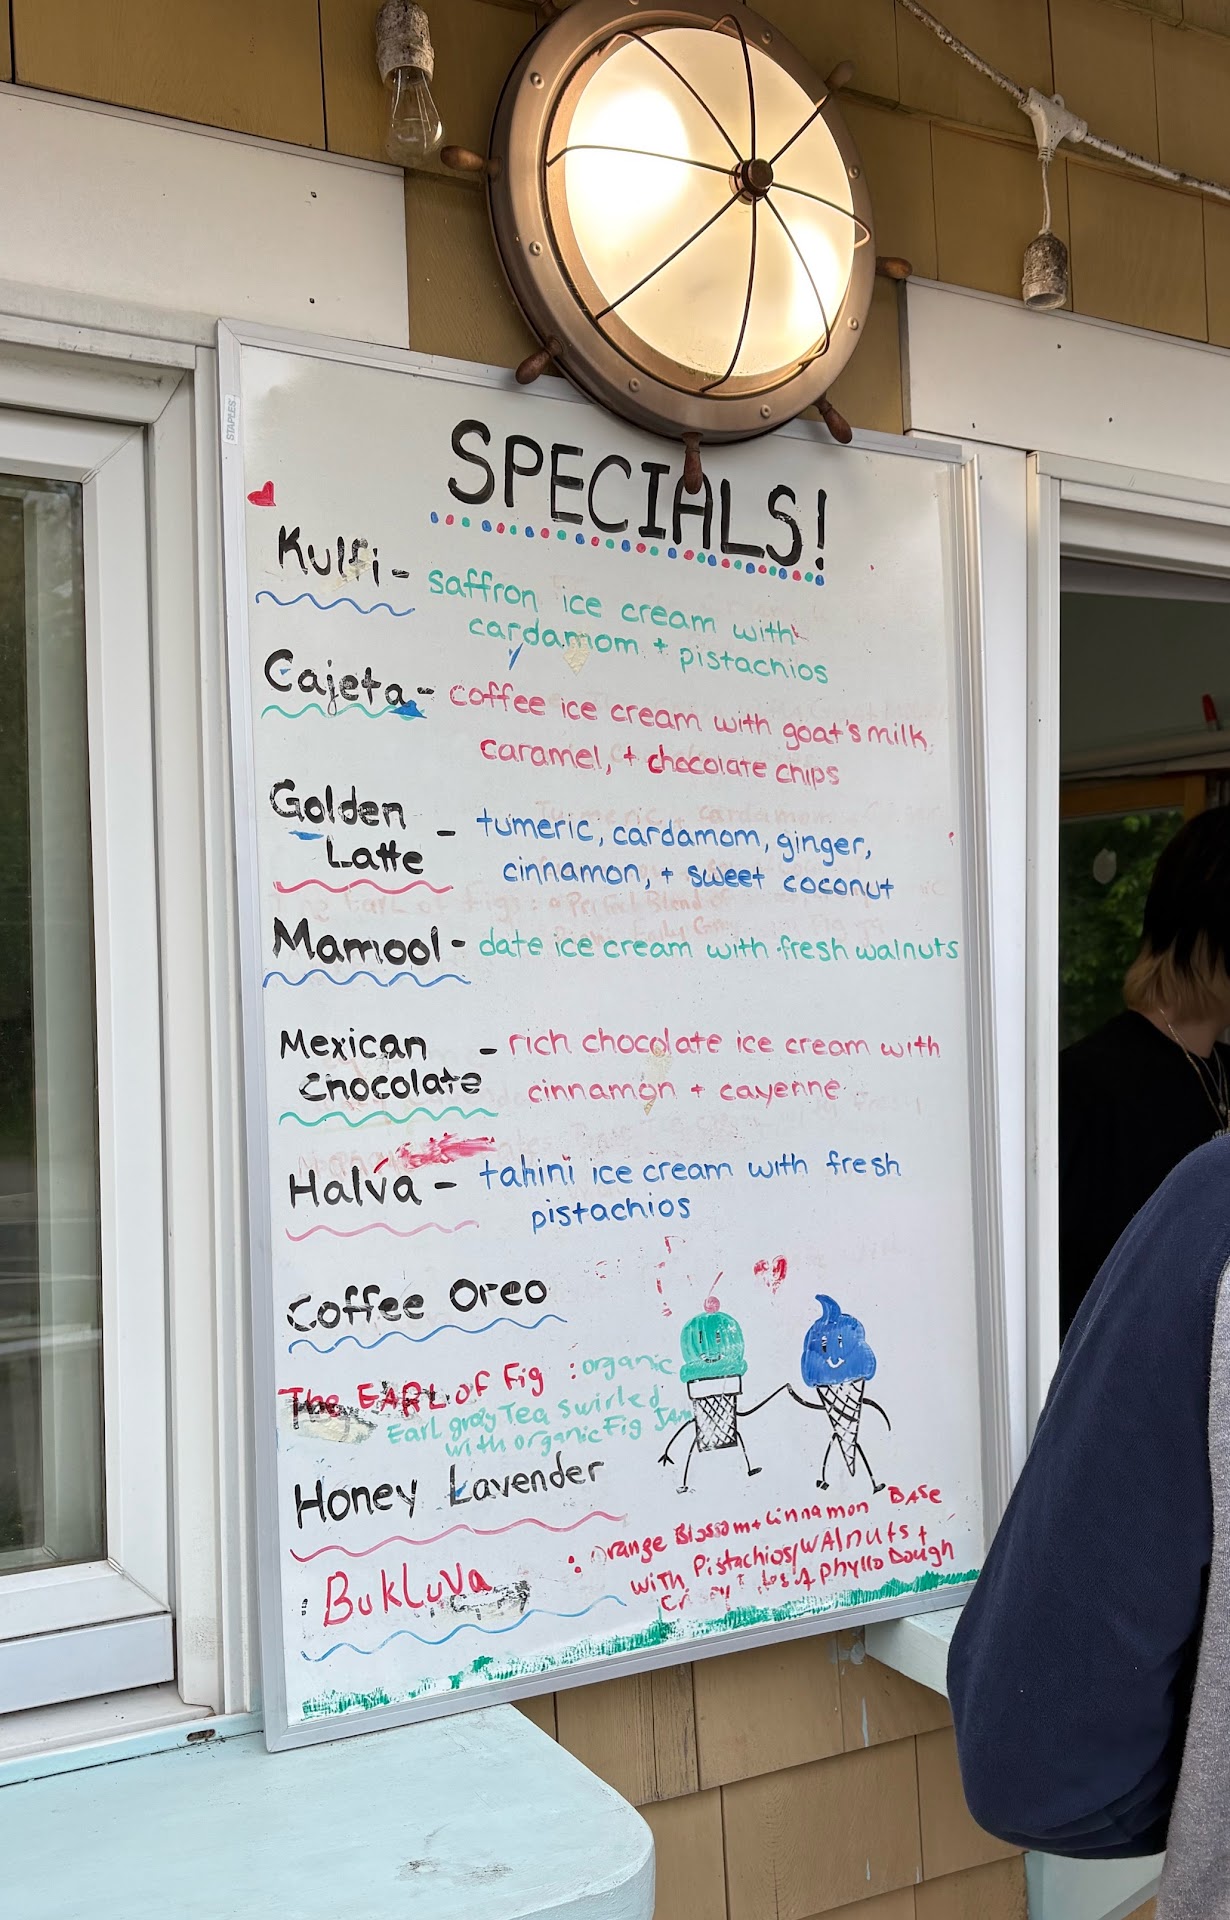 STAPLES
SPECIALS!
Kulfi - saffron ice cream with
cardamom + pistachios
Cajeta - coffee ice cream with goat's milk,
caramel, + chocolate chips
Golden
Latte - tumeric, cardamom, ginger,
cinnamon, + sweet coconut
Mamool - date ice cream with fresh walnuts
Mexican
chocolate - rich chocolate ice cream with
cinnamon + cayenne
Halva - tahini ice cream with fresh
pistachios
Coffee Oreo
The EARL of Fig : organic
Earl gray Tea swirled
with organic Fig JAM
Honey Lavender
BukLuVa : orange Blossom + Cinnamon BASE
with Pistachios/WAlnuts +
phyllo Dough